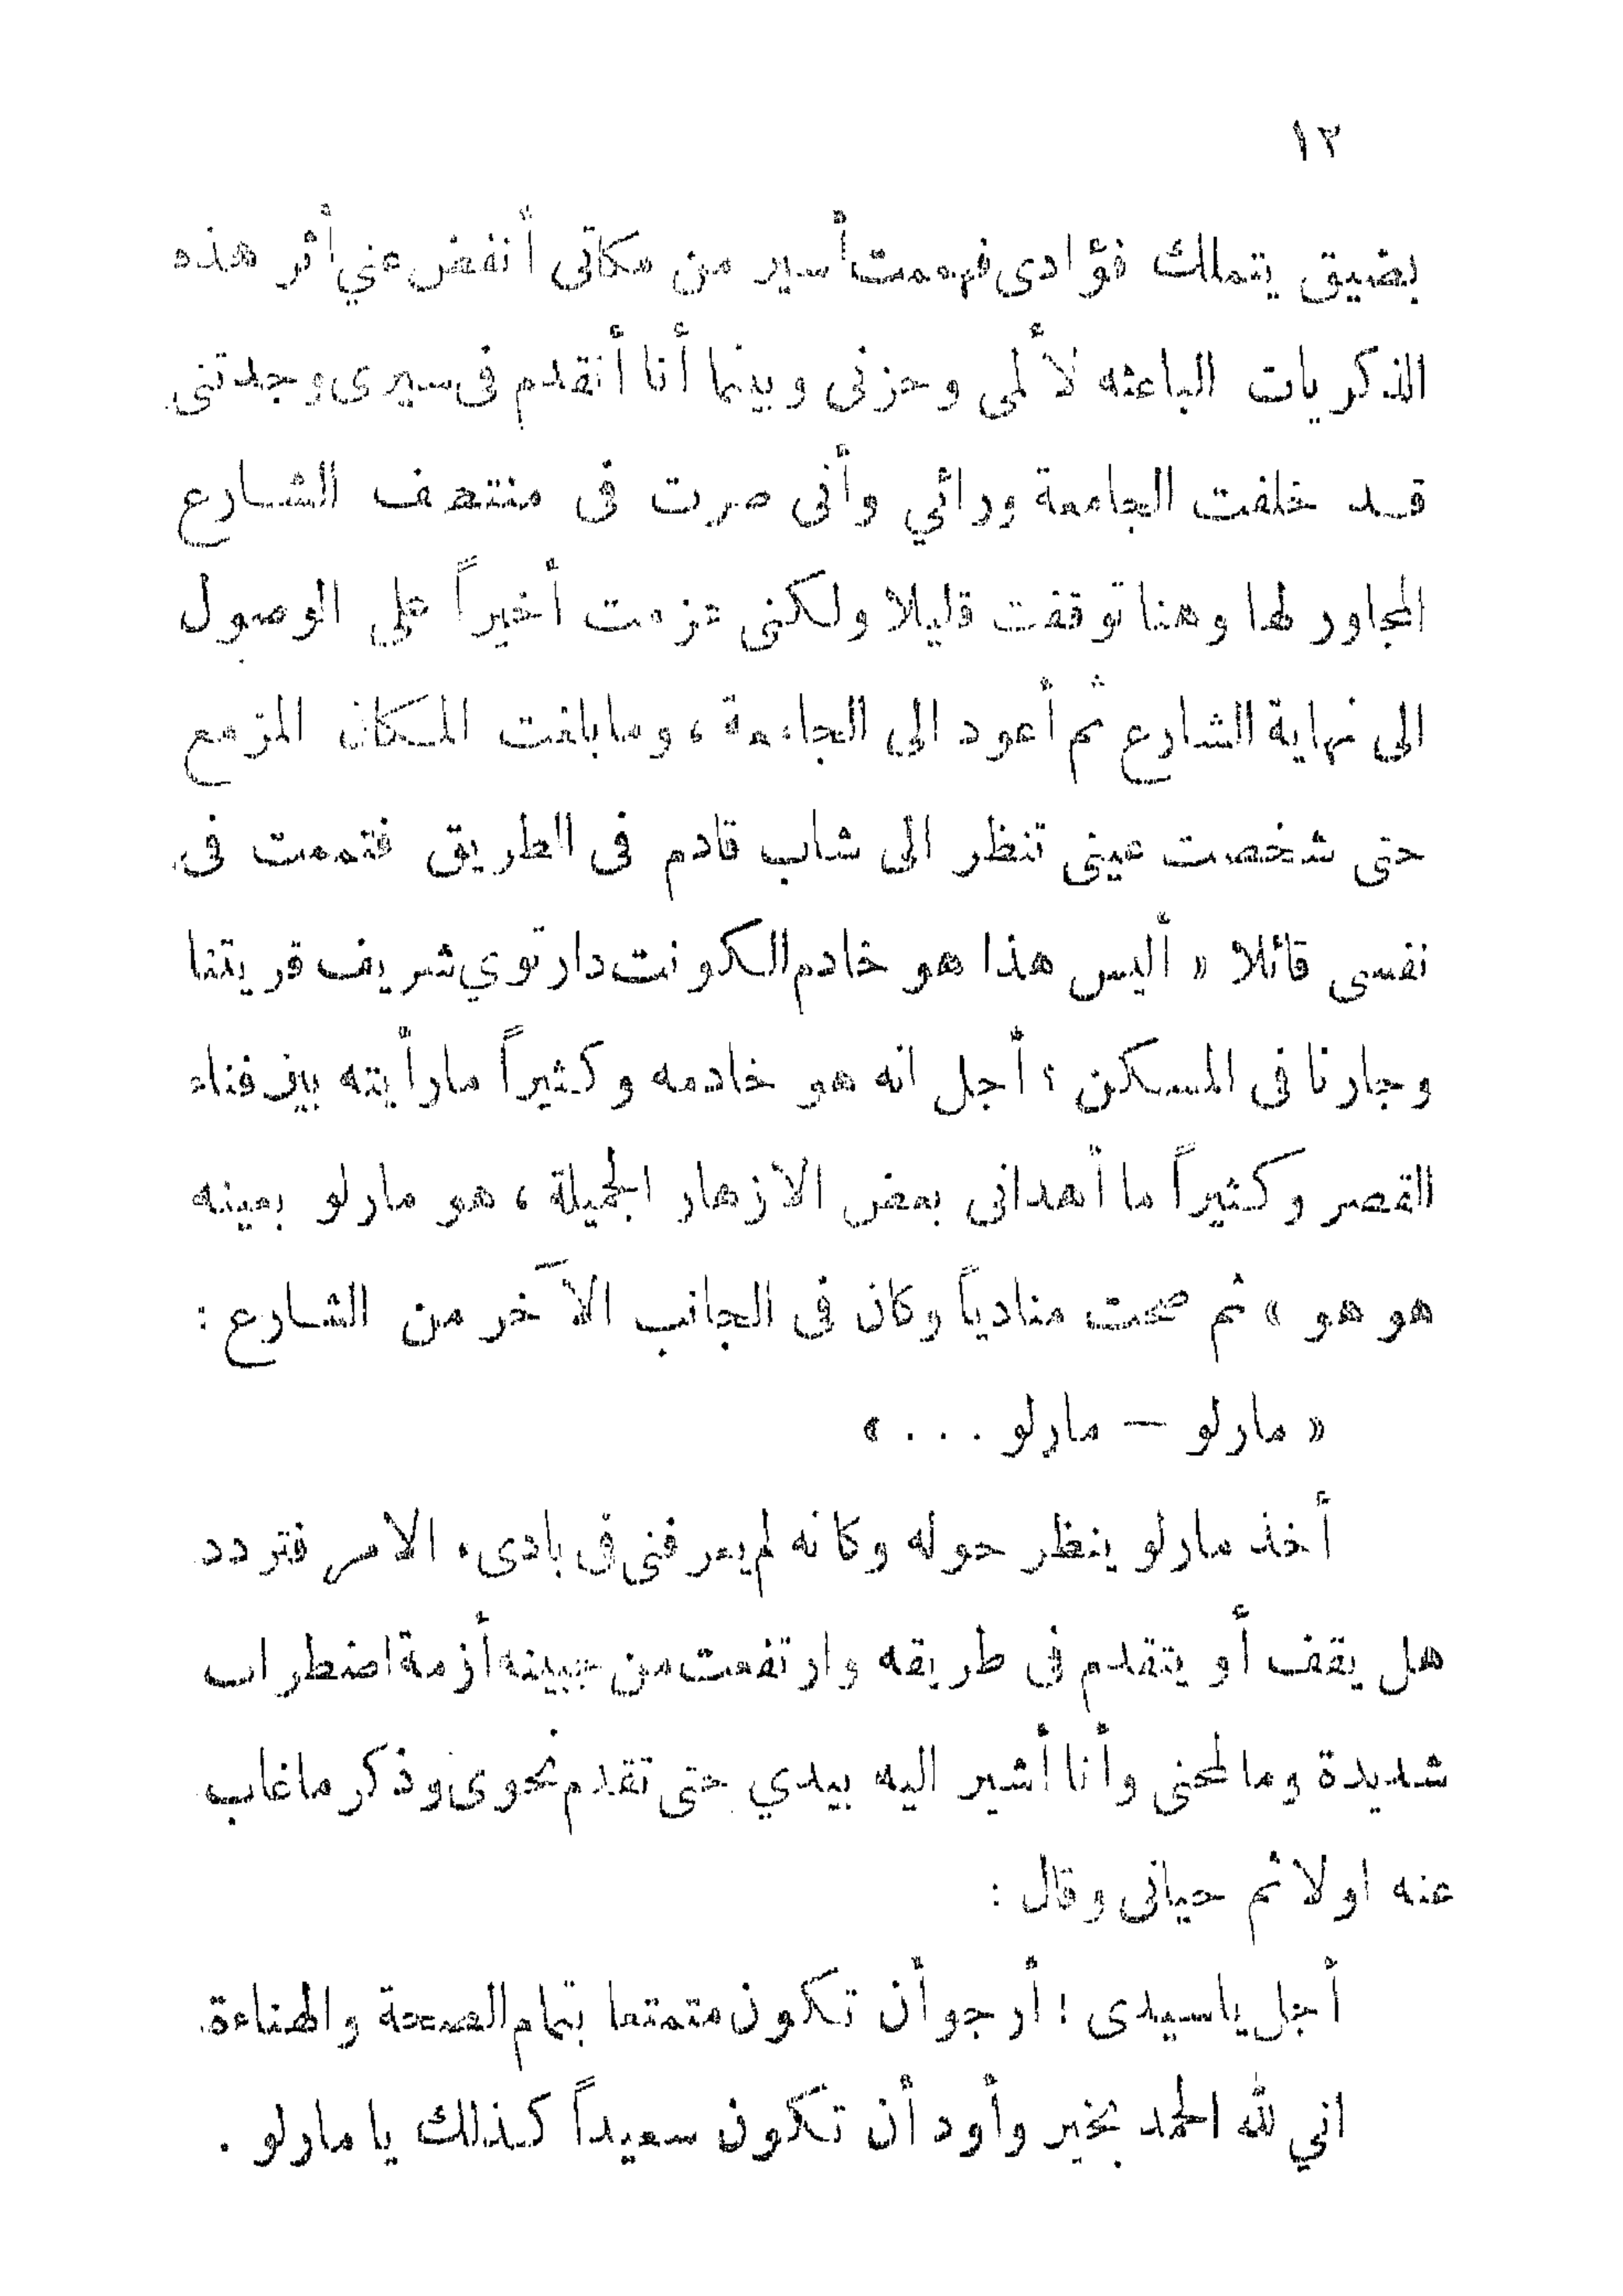 ١٢
بضيق يتملك فؤادى فهممت أسير من مكانى أنفض عني أثر هذه
الذكريات الباعثه لألمى وحزنى وبينما أنا أتقدم فى سيرى وجدتنى
قد خلفت الجامعة ورائي وأنى صرت فى منتصف الشارع
المجاور لها وهنا توقفت قليلا ولكنى عزمت أخيراً على الوصول
الى نهاية الشارع ثم أعود الى الجامعة ، وما بلغت المكان المزمع
حتى شخصت عينى تنظر الى شاب قادم فى الطريق فتممت فى
نفسى قائلا « أليس هذا هو خادم الكونت دارتوي شريف قريتنا
وجارنا فى المسكن ؟ أجل انه هو خادمه وكثيراً ما رأيته بين فناء
القصر وكثيراً ما أهدانى بعض الازهار الجميلة ، هو مارلو بعينه
هو هو » ثم صحت منادياً وكان فى الجانب الآخر من الشارع :
« مارلو — مارلو . . . »
أخذ مارلو ينظر حوله وكانه لم يعرفنى فى بادىء الامر فتردد
هل يقف أو يتقدم فى طريقه وارتفعت من جبينه أزمة اضطراب
شديدة وما لمحنى وأنا أشير اليه بيدي حتى تقدم نحوى وذكر ما غاب
عنه اولا ثم حيانى وقال :
أجل يا سيدى ! أرجو أن تكون متمتعا بتمام الصحة والهناءة
اني لله الحمد بخير وأود أن تكون سعيداً كذلك يا مارلو .